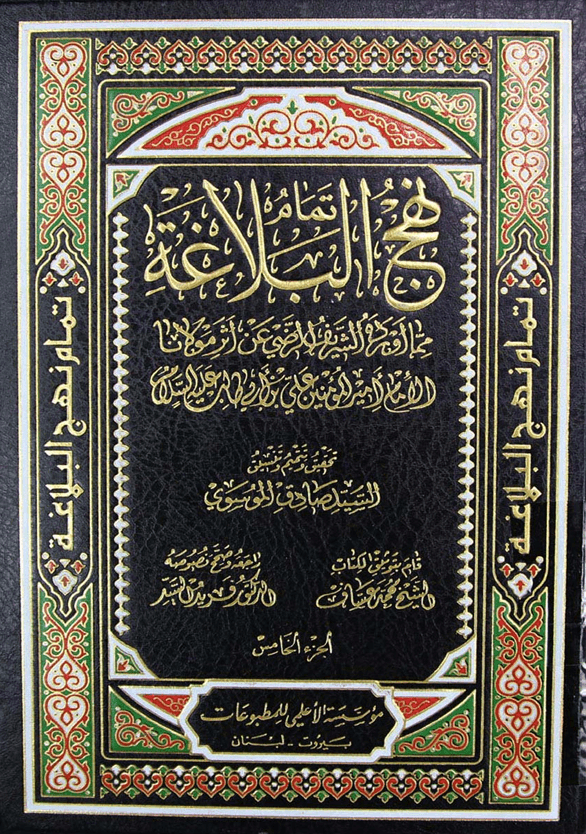 تمام نهج البلاغة
مما أورده الشريف الرضي عن أثر مولانا
الإمام أمير المؤمنين علي بن أبي طالب عليه السلام
تحقيق وتتميم وتنسيق
السيد صادق الموسوي
قام بتوثيق الكتاب
الشيخ محمد عساف
راجعه وصحح نصوصه
الدكتور فريد السيد
الجزء الخامس
مؤسسة الأعلمي للمطبوعات
بيروت - لبنان
تمام نهج البلاغة
تمام نهج البلاغة